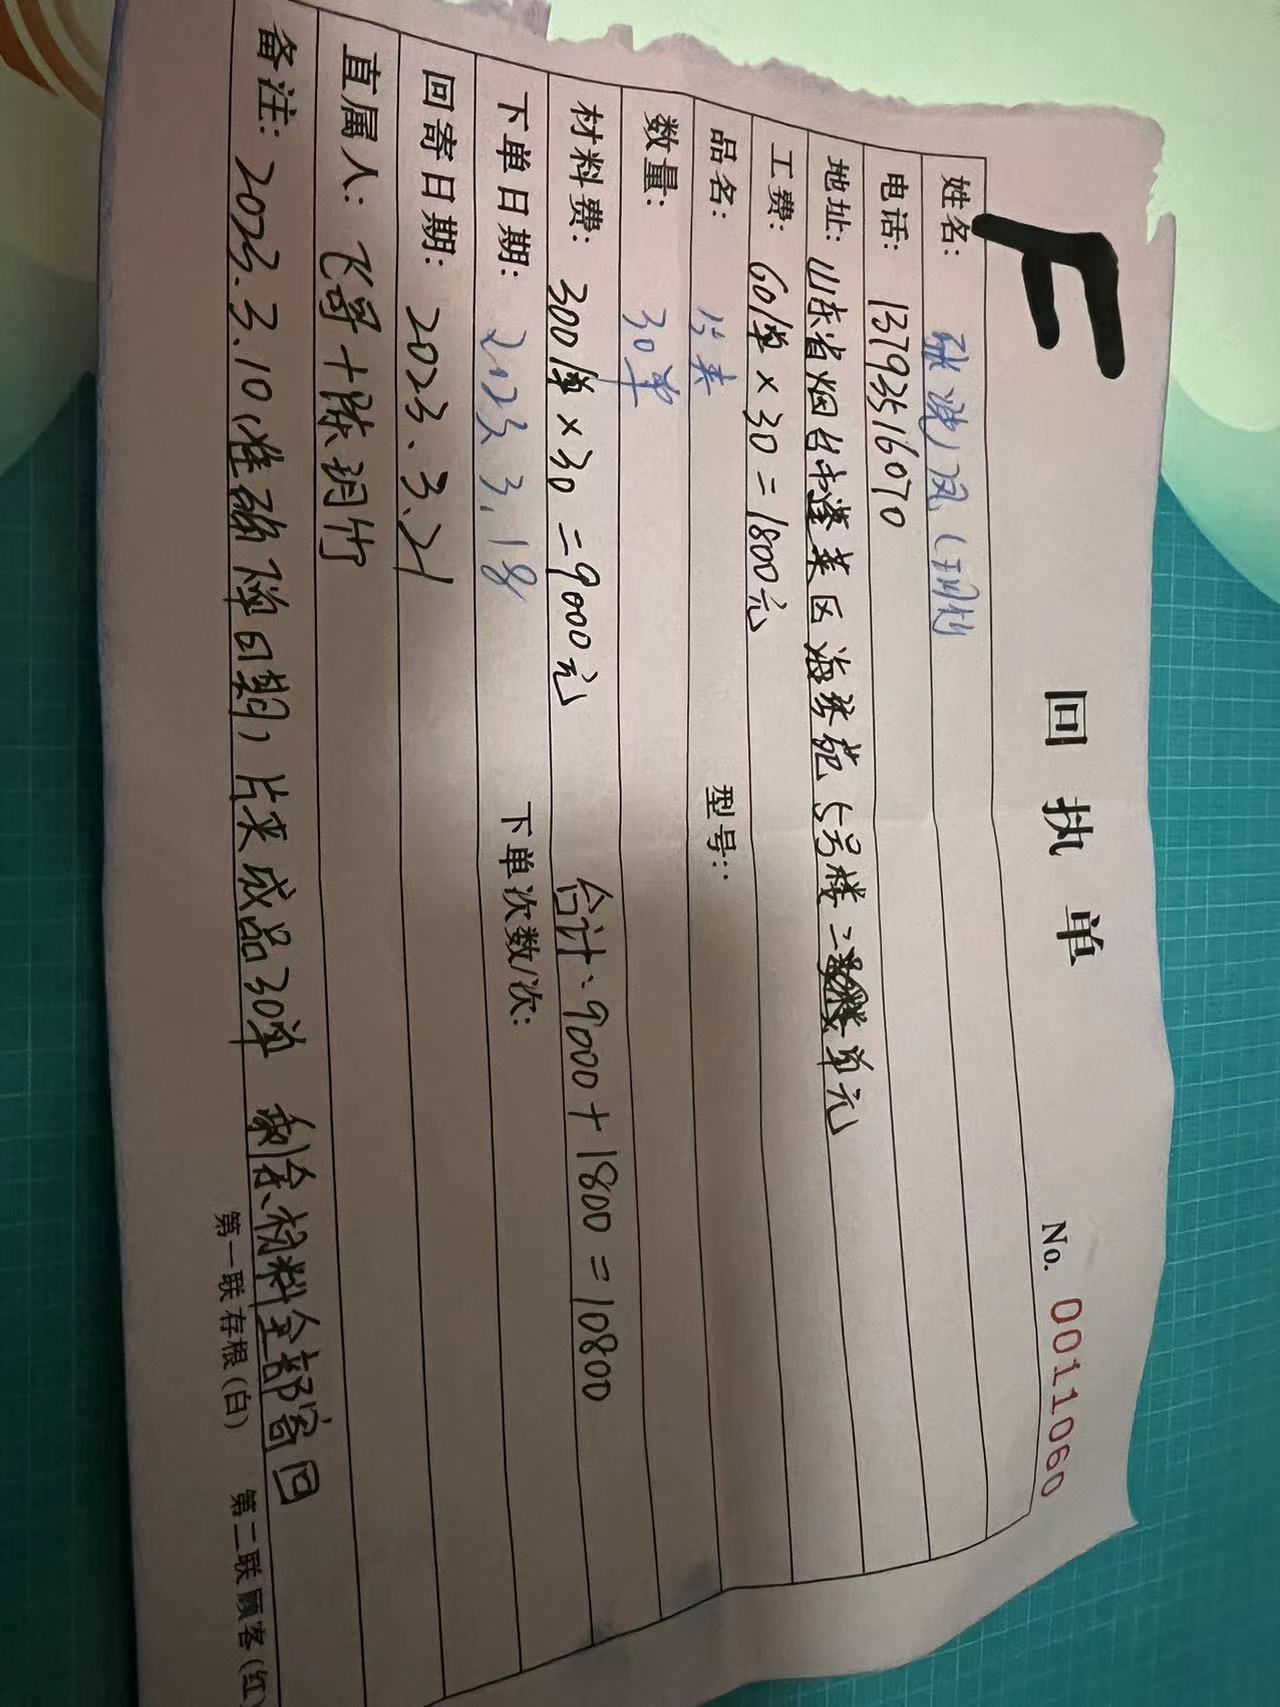 F
回执单
No. 0011060
姓名: 张 凤(玥竹
电话: 13793516070
地址: 山东省烟台市蓬莱区海 苑5号楼二 单元
工费: 60/单×30=1800元
品名: 片夹 型号:
数量: 30单
材料费: 300/单×30=9000元 合计:9000+1800=10800
下单日期: 2023.3.18 下单次数/次:
回寄日期: 2023.3.21
直属人: 飞哥+陈玥竹
备注: 2023.3.10准确降日期,片夹成品30单 剩余材料全部寄回
第一联存根(白) 第二联顾客(红)